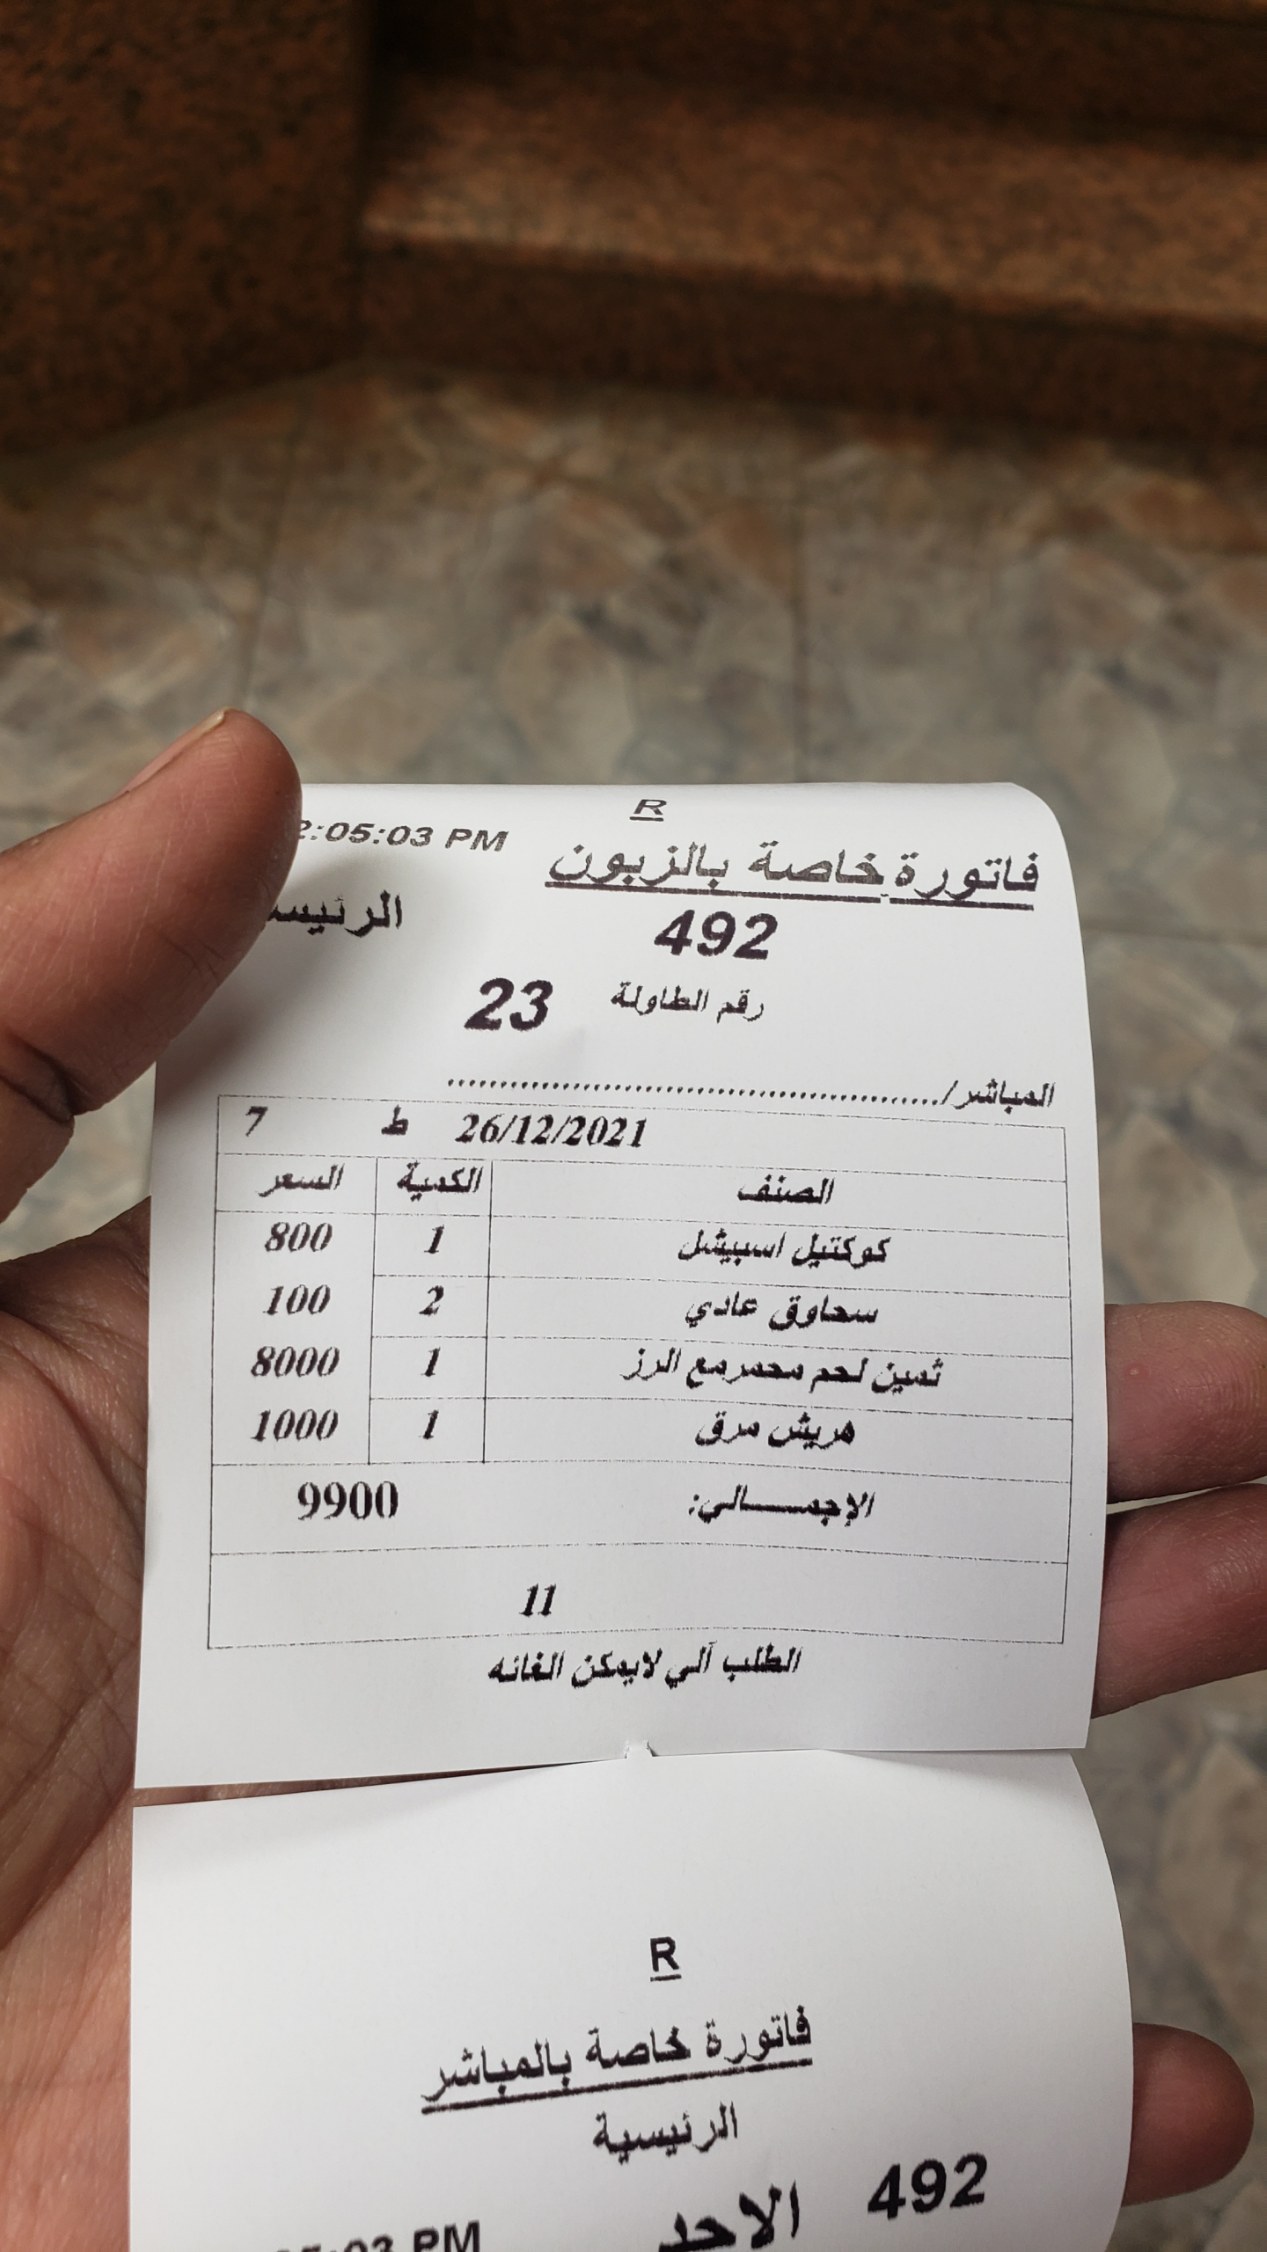 R
2:05:03 PM
فاتورة خاصة بالزبون
492
رقم الطاولة 23
المباشر/......................................................
26/12/2021 ط 7
الصنف الكمية السعر
كوكتيل اسبيشل 1 800
سحاوق عادي 2 100
ثمين لحم محمرمع الرز 1 8000
هريش مرق 1 1000
الإجمـــــالي: 9900
11
الطلب آلي لايمكن الغائه
R
فاتورة خاصة بالمباشر
الرئيسية
492 الاحد